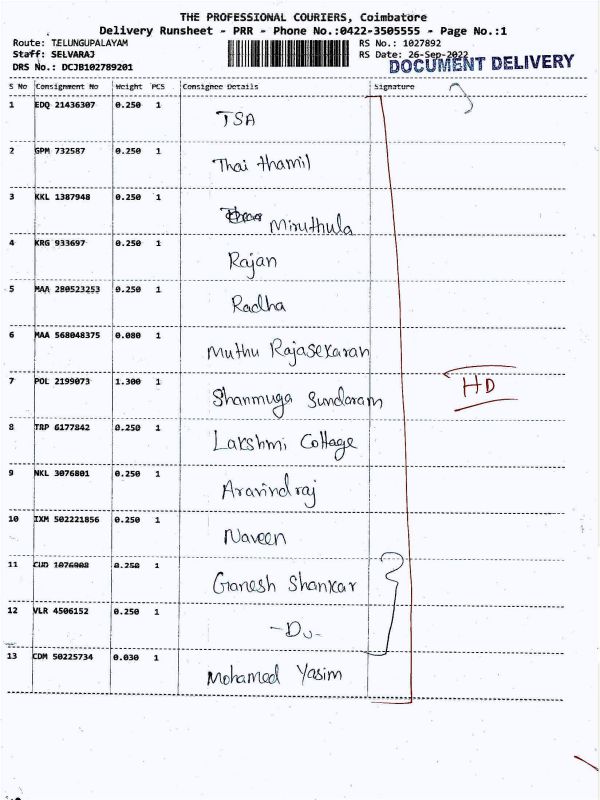 THE PROFESSIONAL COURIERS, Coimbatore
Delivery Runsheet - PRR - Phone No.:0422-3505555 - Page No.:1
Route: TELUNGUPALAYAM RS No.: 1027892
Staff: SELVARAJ RS Date: 26-Sep-2022
DOCUMENT DELIVERY
DRS No.: DCJB102789201
S No Consignment No Weight PCS Consignee Details Signature
1 EDQ 21436307 0.250 1 TSA
2 GPM 732587 0.250 1 Thai thamil
3 KKL 1387948 0.250 1 Miruthula
4 KRG 933697 0.250 1 Rajan
5 MAA 280523253 0.250 1 Radha
6 MAA 568048375 0.080 1 Muthu Rajasekaran
7 POL 2199073 1.300 1 Shanmuga Sundaram
HD
8 TRP 6177842 0.250 1 Lakshmi Cottage
9 NKL 3076801 0.250 1 Aravindraj
10 IXM 502221856 0.250 1 Naveen
11 CUD 1076908 0.250 1 Ganesh Shankar
12 VLR 4506152 0.250 1 -Do-
13 CDM 50225734 0.030 1 Mohamed Yasim